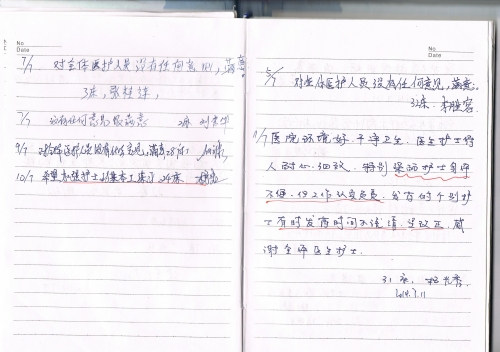 No
Date
7/7 对全体医护人员没有任何意见,满意
3床,张桂连,
7/7 没有任何意见很满意 2床
9/7 对全体医护人员没有任何意见,满意28床:
10/7 希望加强护士的基本工 24床
No
Date
5/7 对全体医护人员没有任何意见,满意.
32床.
11/7 医院环境好.干净卫生.医生护士待
人耐心.细致.特别梁玥护士身体
不便.但工作认真负责.发药时个别护
士有时发药时间不说清.望改正.感
谢全体医生护士.
31床.
2014.7.11